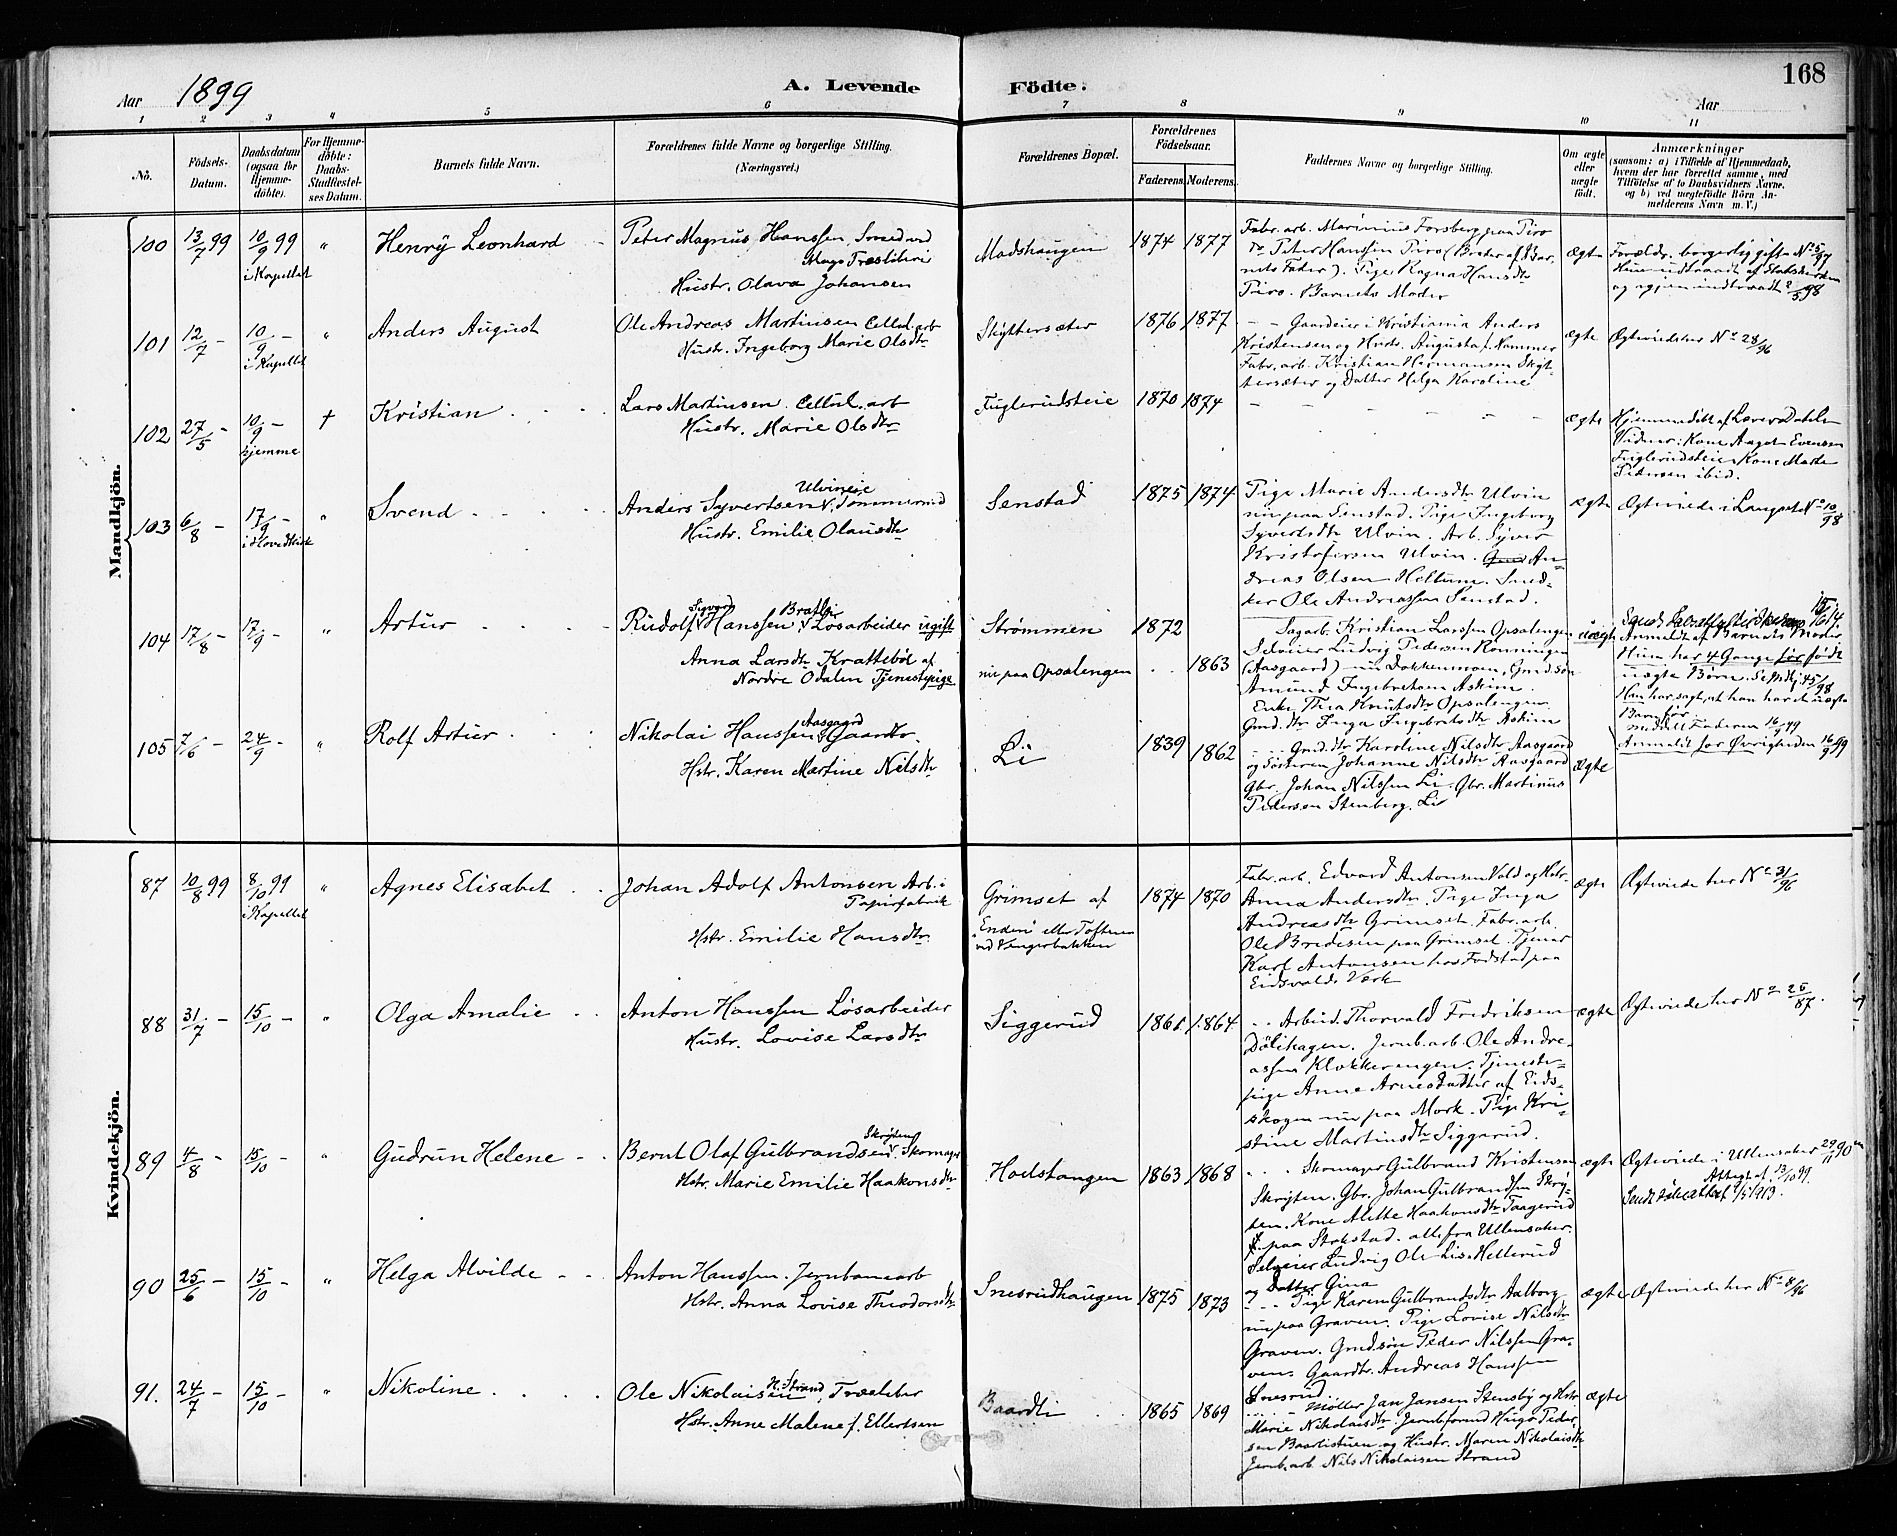 168
Aar 1899
A. Levende Födte.
Aar
1 2 3 4 5 6 7 8 9 10 11
No.
Födsels-Datum.
Daabsdatum (ogsaa for Hjemme-döbte).
For Hjemme-döbte: Daabs-Stadfæstel-ses Datum.
Barnets fulde Navn.
Forældrenes fulde Navne og borgerlige Stilling.
(Næringsvei.)
Forældrenes Bopæl.
Forældrenes Födselsaar.
Faderens. Moderens.
Faddernes Navne og borgerlige Stilling.
Om ægte eller uægte födt.
Anmærkninger
(saasom: a) i Tilfælde af Hjemmedaab,
hvem der har forrettet samme, med
Tilföielse af to Daabsvidners Navne,
og b) ved uægtefödte Börn An-
melderens Navn m. V.)
Mandkjön.
100 13/7 99 10/9 99 i Kapellet " Henry Leonhard
Peter Magnus Hanssen, Smed ved
Hustr. Olava Johansen
Modshaugen 1874 1877
Fabr. arb. Marinius Forsberg paa Piro
Do Peter Hanssen Piro (Broder af Bar-
nets Fader). Pige Ragna Hansdtr
Piro. Barnets Moder
ægte
Forældr. borgerlig gifte No 5/97
Hun udtraadt af Statskirken
og igjen indtraadt 2/5 98
101 12/7 - 10/9 - i Kapellet " Anders August
Ole Andreas Martinsen Cellul. arb
Hustr. Ingeborg Marie Olsdtr
Skyttersæter 1876 1877
- - Gaardeier i Kristiania Anders
Kristensen og Hustr. Augusta f. Nommer
Fabr. arb. Kristian Hermansen Skyt-
tersæter og Datter Helga Karoline
ægte
Ægteviede her No 28/96
102 27/5 - 10/9 - hjemme † Kristian
Lars Martinsen Cellul. arb
Hustr. Marie Olsdtr
Fuglerudsteie 1870 1874
- - - - - -
ægte
Hjemmedöbt af Lærer Dahlen
Vidner: Kone Aaget Evensen
Fuglerudsteie Kone Marte
Pedersen ibid.
103 6/8 17/9 - i Hovedkirk " Svend
Ulvineie
Anders Syvertsen v. Tømmermd
Hustr. Emilie Olausdtr
Senstad 1875 1874
Pige Marie Andersdtr Ulvin
nu paa Senstad. Pige Ingeborg
Syvertsdtr Ulvin. Arb. Syver
Kristofersen Ulvin. An-
dreas Olsen Hellum. Sned-
ker Ole Andreassen Senstad.
ægte
Ægteviede i Langset No 10/98
104 17/8 - 17/9 - " Artur
Sigvard Bratli
Rudolf Hanssen v Løsarbeider ugift
Anna Larsdtr Krattebøl af
Nordre Odalen Tjenestepige
Strømmen 1872
nu paa Opsalengen 1863
Sagarb. Kristian Larssen Opsalengen
Selveier Ludvig Pedersen Rønningen
(Aasgaard) nu Dokkenmoen, Gmd. søn
Amund Ingebretsen Askim.
Enke Thea Knutsdtr Opsalengen
Gmd. dtr Inga Ingebretsdtr Askim
uægte
Anmeldt af Barnets Moder
Hun har 4 Gange før født
uægte Børn.
Han har sagt, at han har et uægte
Barn før.
Meddelt Faderen 16/9 99
Anmeldt for Øvrigheden 16/9 99
105 7/6 - 24/9 - " Rolf Artur
Aasgaard
Nikolai Hanssen v Gaardbr.
Hstr. Karen Martine Nilsdtr
Li 1839 1862
- - Gmd. dtr Karoline Nilsdtr Aasgaard
og Søsteren Johanne Nilsdtr Aasgaard
Gbr. Johan Nilssen Li. Gbr. Martinus
Pedersen Stenberg. Li
ægte
Kvindekjön.
87 10/8 99 8/10 99 i Kapellet " Agnes Elisabet
Johan Adolf Antonsen Arb. i
Papirfabrik
Hstr. Emilie Hansdtr.
Grimset af
Enderi eller Toften
ved Vengerbakken
1874 1870
Fabr. arb. Edvard Antonsen Vold og Hstr.
Anna Andersdtr. Pige Inga
Andreasdtr Grimset. Fabr. arb.
Ole Bredesen paa Grimset. Tjener
Karl Antonsen hos Fodstad paa
Eidsvolds Værk
ægte
Ægteviede her No 31/96
88 31/7 - 15/10 - " Olga Amalie
Anton Hanssen Løsarbeider
Hustr. Lovise Larsdtr
Siggerud 1861 1864
- - Arbeid. Thorvald Fredriksen
Dölihagen. Jernb. arb. Ole Andre-
assen Klokkerengen. Tjeneste-
pige Anne Arnesdatter af Eids-
skogen nu paa Mork. Pige Kri-
stine Martinsdtr Siggerud.
ægte
Ægteviede her No 25/87.
89 4/8 - 15/10 - " Gudrun Helene
Skrijten
Bernt Olaf Gulbrandsen v. Skomager
Hstr. Marie Emilie Haakonsdtr
Hodstangen 1863 1868
- - Skomager Gulbrand Kristensen
Skrijten. Gbr. Johan Gulbrandsen Skrij-
ten. Kone Mette Haakonsdtr Taagerud
paa Stokstad. alle fra Ullensaker.
Selveier Ludvig Olsen Lis. Hellerud
og Datter Gina
ægte
Ægteviede i Ullensaker 29/11 90
Attest af 13/10 99.
Sendt dåbsattest 1/5 1913.
90 25/6 - 15/10 - " Helga Alvilde
Anton Hanssen. Jernbanearb
Hstr. Anna Lovise Theodorsdtr
Snesrudhaugen 1875 1873
- - - Pige Karen Gulbrandsdtr Aalborg
nu paa Graven. Pige Lovise Nilsdtr
Graven. Gmdsøn Peder Nilssen Gra-
ven. Gaardbr. Andreas Hanssen
Snesrud.
ægte
Ægteviede her No 8/96
91. 24/7 - 15/10 - " Nikoline
N. Strand
Ole Nikolaisen, Træsliber
Hstr. Anne Malene f. Ellertsen
Baardli 1865 1869
- - Møller Jan Jansen Stensby og Hstr
Marie Nikolaisdtr. Jernbformd Hugo Peder-
sen Baarlistuen og Hustr. Maren Nikolaisdtr
Jernb. arb. Nils Nikolaisen Strand
ægte